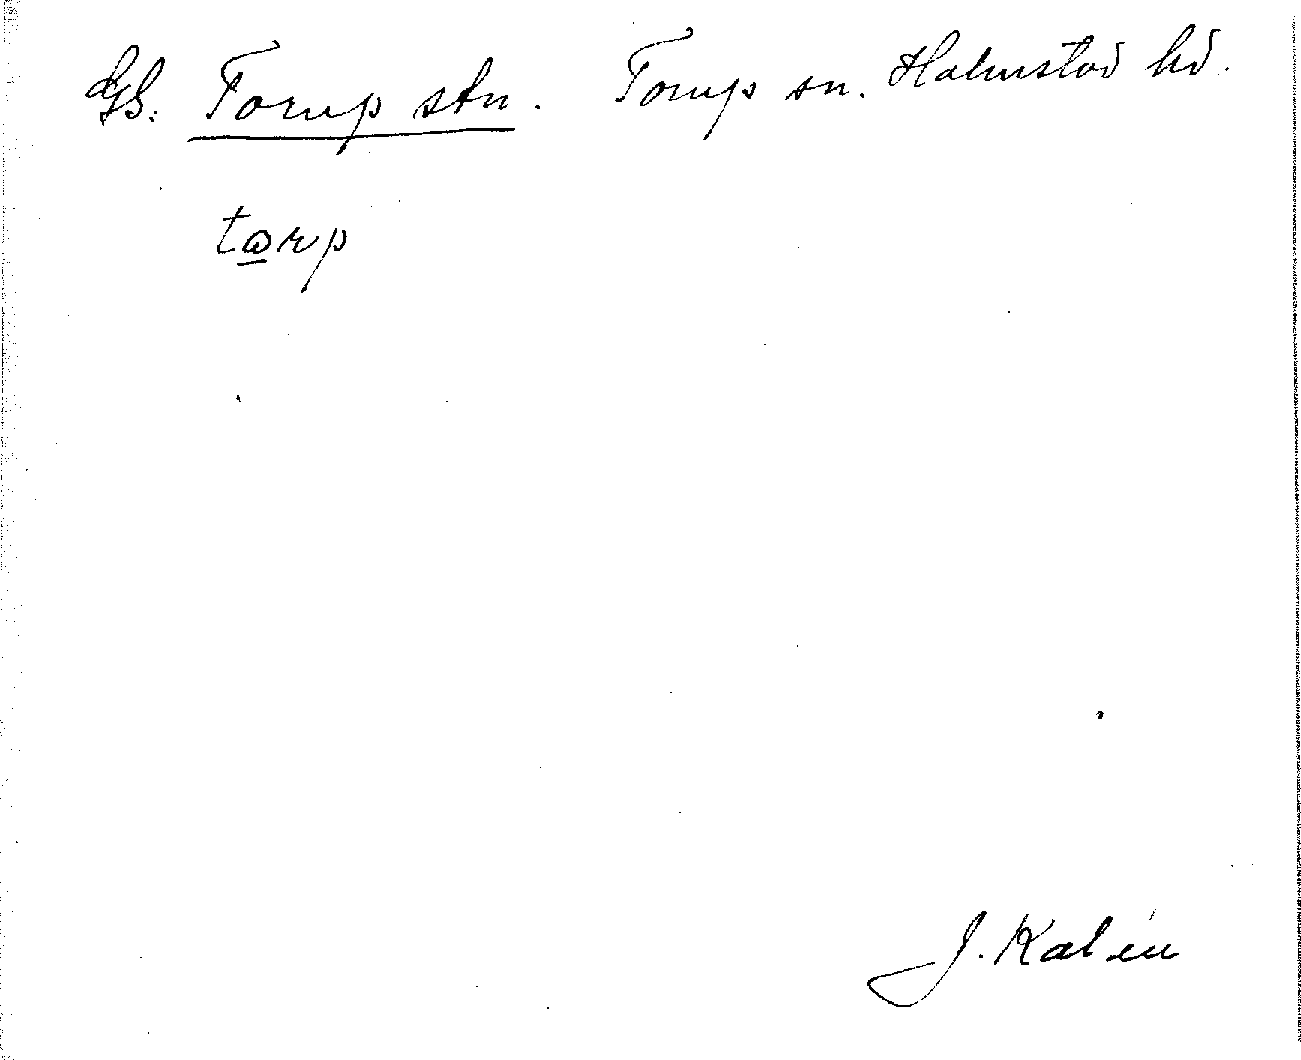 GS. Torup stn. Torup sn. Halmstad hd.
tɷrp
J. Kalén